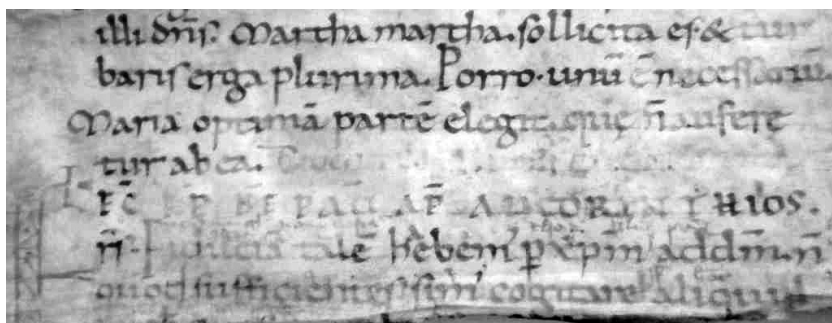 illi dn̄s. Martha martha. sollicita es. & tur
baris erga plurima. Porro. unū ē necessariū.
Maria optimā partē elegit. que n̄ aufere
tur ab ea.
AD CORINTHIOS.
talē habem' p xp̄m ad dm̄. n̄
quod sufficientes sim' cogitare aliquid